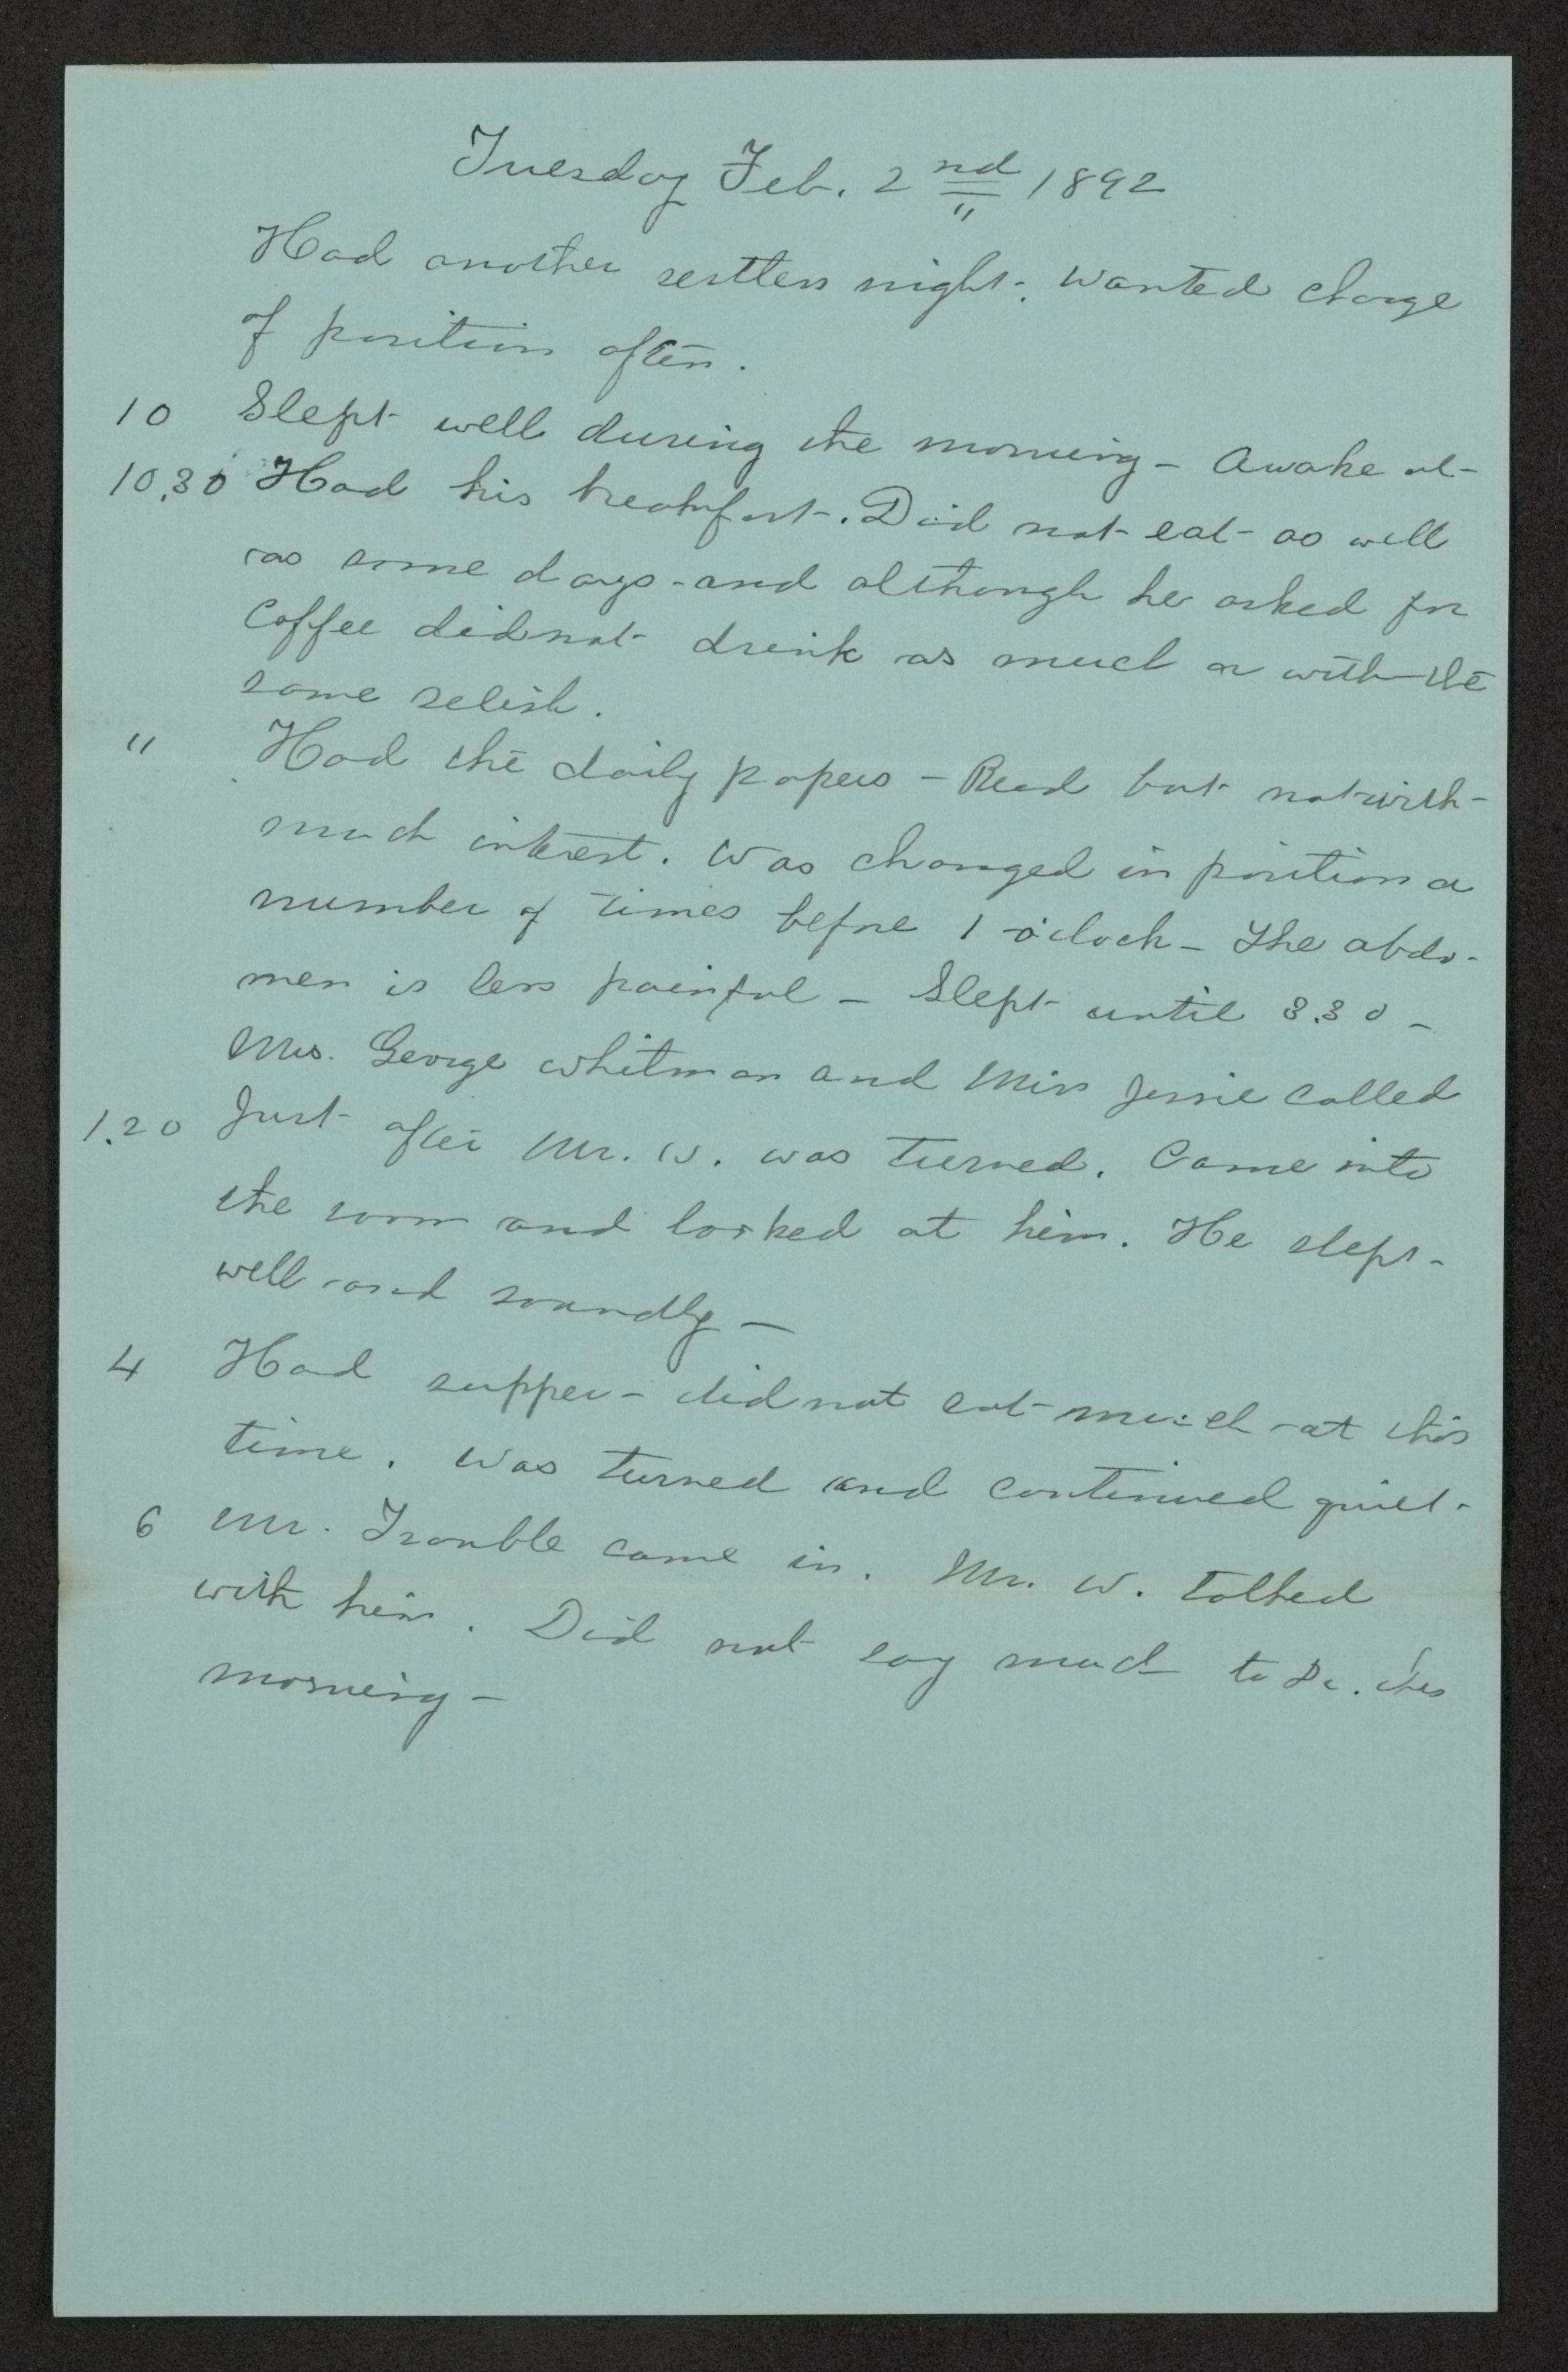 Tuesday Feb. 2nd 1892
Had another restless night. Wanted change
of position often.
10 Slept well during the morning - Awake at
10.30 Had his breakfast. Did not eat as well
as some days - and although he asked for
coffee did not drink as much or with the
same relish.
11 Had the daily papers - Read but not with
much interest. Was changed in position a
number of times before 1 o'clock - The abdo-
men is less painful - Slept until 3.30 -
Mrs. George Whitman and Miss Jessie called
1.20 Just after Mr. W. was turned. Came into
the room and looked at him. He slept
well and soundly -
4 Had supper - did not eat much at this
time. Was turned and continued quiet.
6 Mr. Trauble came in. Mr. W. talked
with him. Did not say much to Dr. this
morning -